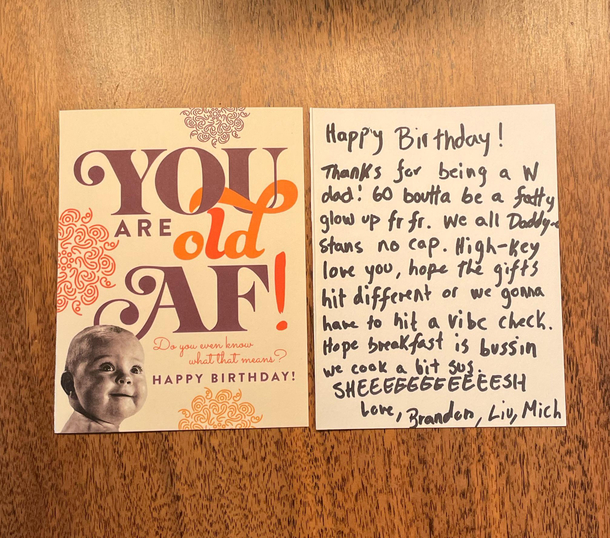 YOU
ARE old
AF!
Do you even know
what that means?
HAPPY BIRTHDAY!
Happy Birthday!
Thanks for being a W
dad! 60 boutta be a fatty
glow up fr fr. We all Daddy-o
stans no cap. High-Key
love you, hope the gifts
hit different or we gonna
have to hit a vibe check.
Hope breakfast is bussin
we cook a bit sus.
SHEEEEEEEEEEESH
Love, Brandon, Liv, Mich